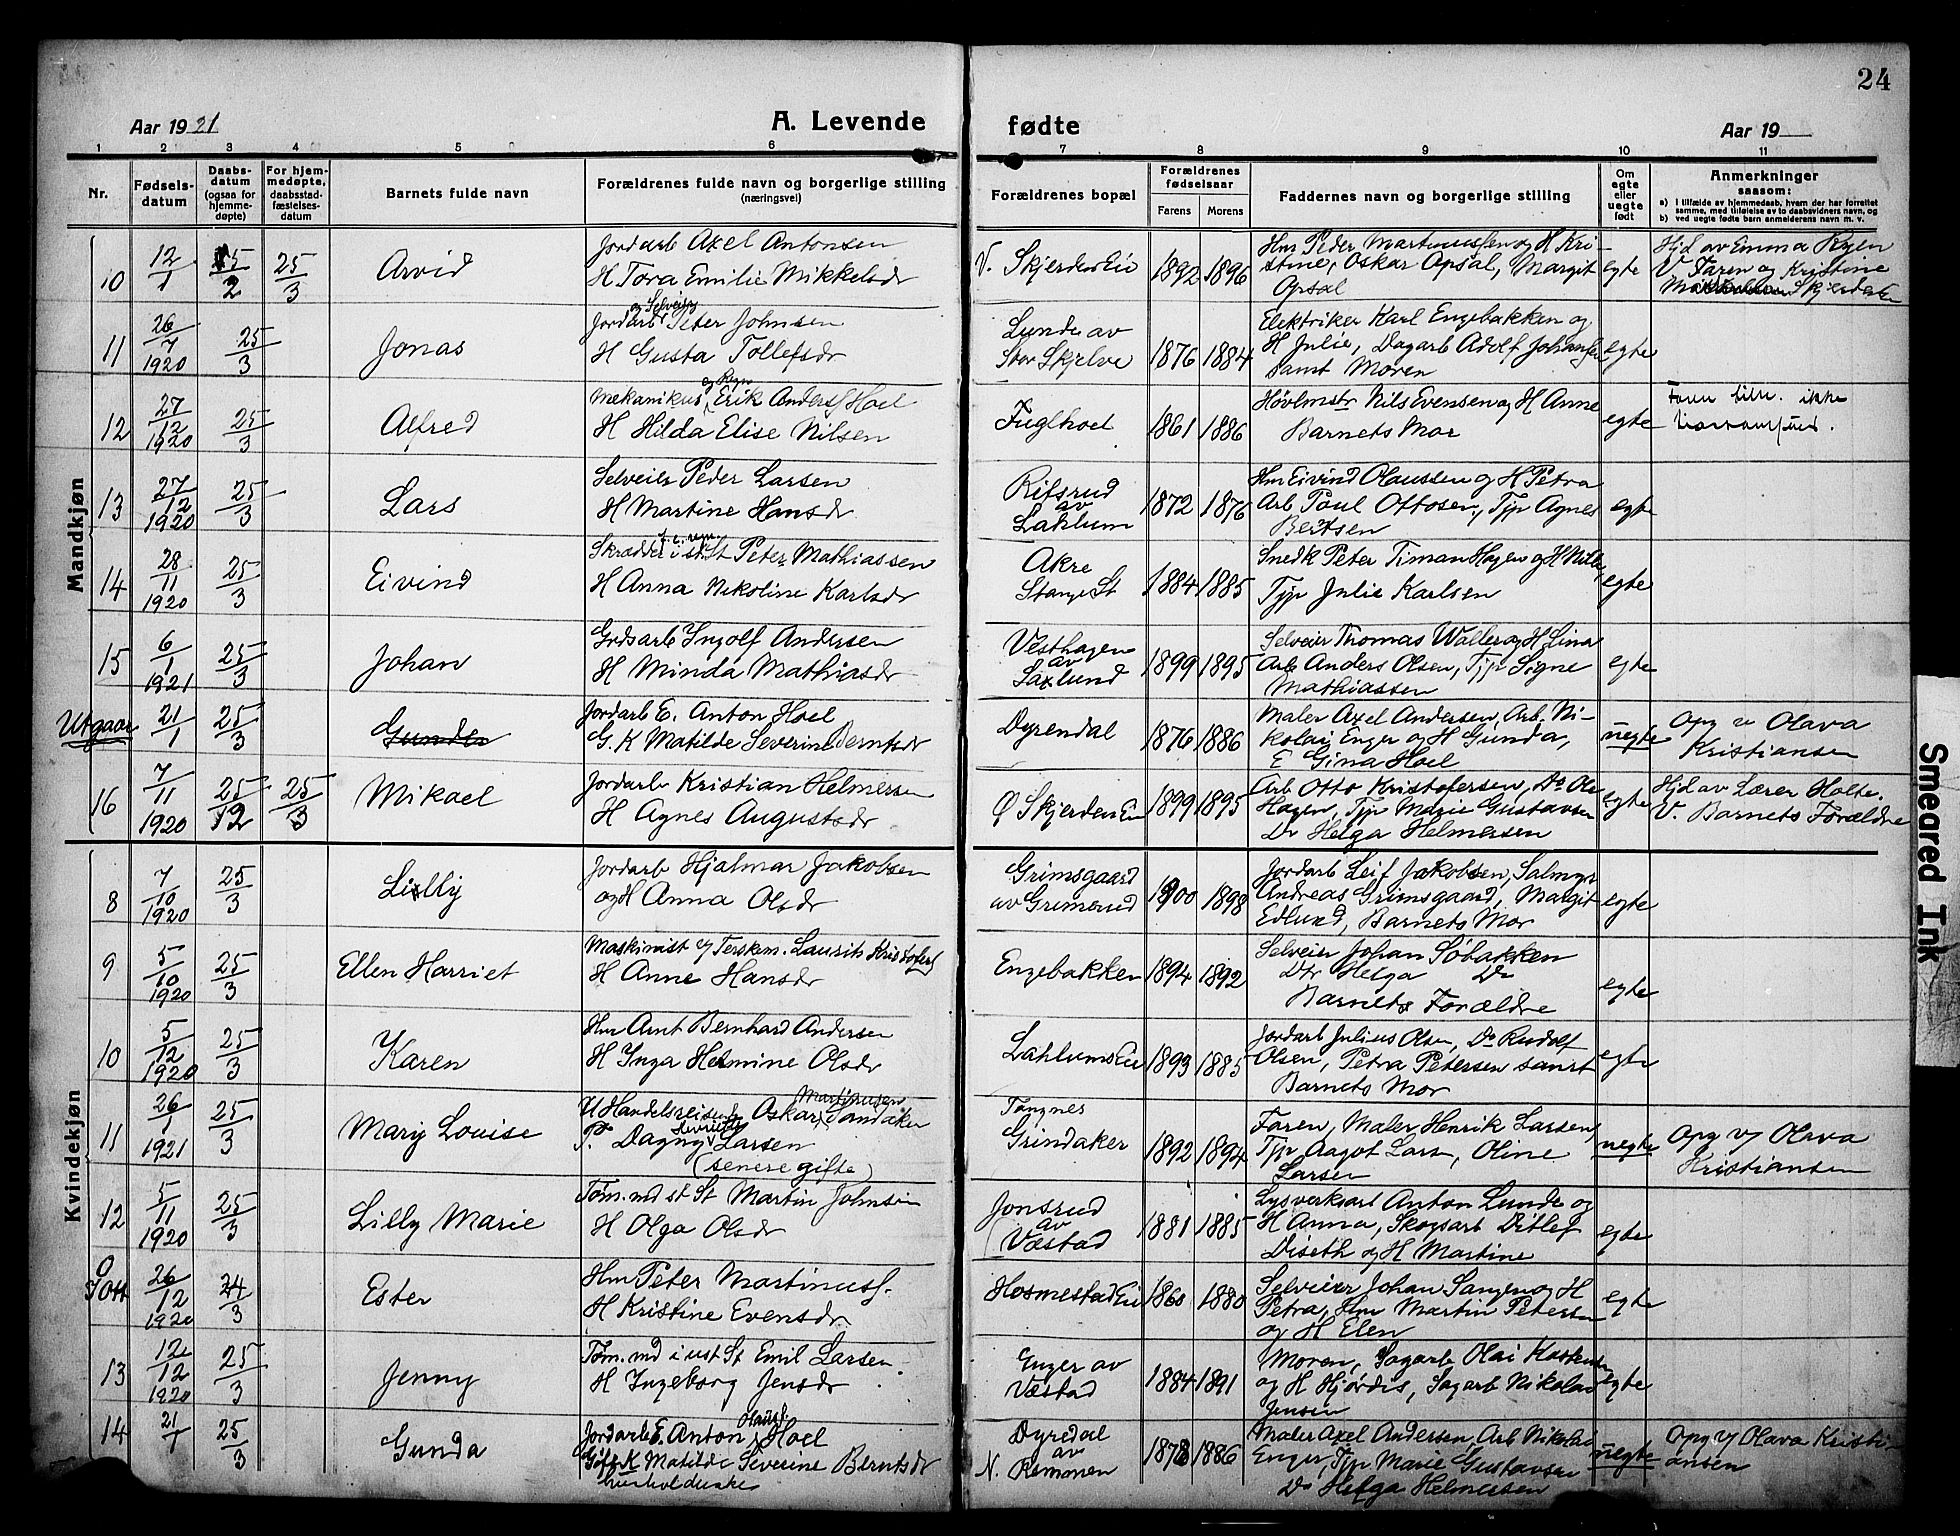 24
Aar 1921
A. Levende
fødte
Aar 19
1 2 3 4 5 6 7 8 9 10 11
Nr.
Fødsels-
datum
Daabs-
datum
(ogsaa for
hjemme-
døpte)
For hjem-
medøpte,
daabsstad-
fæstelses-
datum
Barnets fulde navn
Forældrenes fulde navn og borgerlige stilling
(næringsvei)
Forældrenes bopæl
Forældrenes
fødselsaar
Farens Morens
Faddernes navn og borgerlige stilling
Om
egte
eller
uegte
født
Anmerkninger
saasom:
a) I tilfælde av hjemmedaab, hvem der har forrettet
samme, med tilføielse av to daabsvidners navn, og
b) ved uegte fødte barn anmelderens navn m. v.
Mandkjøn
10 12/1 15/2 25/3 Arvid
Jordarb Axel Antonsen
H Tora Emilie Mikkelsdr
V. Skjerden Ei 1892 1896
Hm Peder Martinussen og H Kri-
stine, Oskar Opsal, Margit
Opsal
egte
Hjd av Emma Ryen
V. Faren og Kristine
Skjerden
11 26/7 1920 25/3 Jonas
og Selveier
Jordarb Peter Johnsen
H Gusta Tollefsdr
Lunde av
Stor Skjelve
1876 1884
Elektriker Karl Engebakken og
H Julie, Dagarb Adolf Johansen
samt Moren
egte
12 27/12 1920 25/3 Alfred
Mekanikus Erik Anders. Hoel
H Hilda Elise Nilsen
Fuglhoel
1861 1886
Høvlmstr Nils Evensen og H Anne
Barnets Mor
egte
ikke
13 27/12 1920 25/3 Lars
Selveier Peder Larsen
H Martine Hansdr
Rifsrud
av
Lahlum
1872 1876
Hm Eivind Olaussen og H Petra
Arb Paul Ottosen, Tjp Agnes
Berntsen
egte
14 28/11 1920 25/3 Eivind
Skrædder i st St Peter Mathiassen
H Anna Nikoline Karlsdr
Akre
Stange St
1884 1885
Snedk Peter Timan Hagen og H
Tjp Julie Karlsen
egte
15 6/1 1921 25/3 Johan
Grdsarb Ingolf Andersen
H Minda Mathiasdr
Vesthagen
av
Saxlund
1899 1895
Selveier Thomas Waller og H Lina
Arb Anders Olsen, Tjp Signe
Mathiassen
egte
Utgaar 21/1 25/3 Gunda
Jordarb E. Anton Hoel
G. K Matilde Severine Berntsdr
Dyrendal
1876 1886
Maler Axel Andersen, Arb. Ni-
kolai Enger og H Gunda,
E Gina Hoel
uegte
Opg v Olava
Kristiansen
16 7/11 1920 25/12 25/3 Mikael
Jordarb Kristian Helmersen
H Agnes Augustsdr
Ø Skjerden Ei
1899 1895
Arb Otto Kristofersen, Do Ole
Hagen, Tjp Marie Gustavsen
Do Helga Helmersen
egte
Hjd av Lærer Holte.
V. Barnets Forældre
Kvindekjøn
8 7/10 1920 25/3 Lilly
Jordarb Hjalmar Jakobsen
og H Anna Olsdr
Grimsgaard
av Grimerud
1900 1898
Jordarb Leif Jakobsen, Salmgr
Andreas Grimsgaard, Margit
Edlund, Barnets Mor
egte
9 5/10 1920 25/3 Ellen Harriet
Maskinist v/ Terskem. Laurits Kristofers
H Anne Hansdr
Engebakken
1894 1892
Selveier Johan Søbakken
Dtr Helga Do
Barnets Forældre
egte
10 5/12 1920 25/3 Karen
Hm Arnt Bernhard Andersen
H Inga Helmine Olsdr
Lahlums Ei
1893 1885
Jordarb Julius Olsen, Do Rudolf
Olsen, Petra Petersen samt
Barnets Mor
egte
11 26/1 1921 25/3 Mary Louise
Martinusen
U Handelsreisende Oskar Sandaker
P. Dagny Larsen
(senere gifte)
Tangnes
Grindaker
1892 1894
Faren, Maler Henrik Larsen,
Tjp Aagot Lars, Oline
Larsen
uegte
Opg v/ Olava
Kristiansen
12 5/11 1920 25/3 Lilly Marie
Tøm.md st St Martin Johnsen
H Olga Olsdr
Jonsrud
av
Væstad
1881 1885
Lysverksarb Anton Lunde og
H Anna, Skogsarb Ditlef
Diseth og H Martine
egte
26/12 1920 24/3 Ester
Hm Peter Martinuss.
H Kristine Evensdr
Hosmestad Ei
1860 1880
Selveier Johan Sangen og H
Petra, Hm Martin Petersen
og H Elen
egte
13 12/12 1920 25/3 Jenny
Tøm.md i ust St Emil Larsen
H Ingeborg Jensdr
Enger av
Væstad
1884 1891
Moren, Sagarb Olai
og H Hjørdis, Sagarb Nikolai
Jensen
egte
14 21/1 25/3 Gunda
Jordarb E. Anton Hoel
Gift K Matilde Severine Berntsdr
Dyredal
av
N. Remmen
1878 1886
Maler Axel Andersen, Arb Nikolai
Enger, Tjp Marie Gustavsen
Do Helga Helmersen
uegte
Opg v/ Olava Kristi-
ansen
Smeared Ink